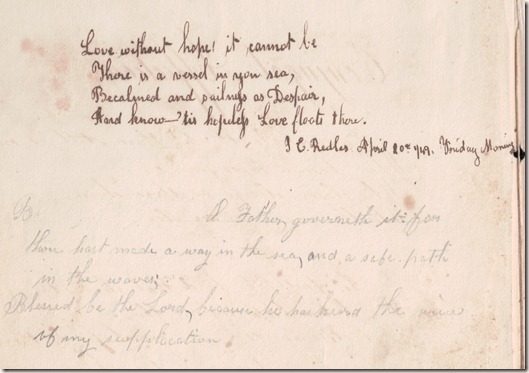 Love without hope! it cannot be
There is a vessel in yon sea,
Becalmed and sailness as Despair,
And know—'tis hopeless Love floats there.
April 20th /49. Friday Morning
A Father, governeth it: for
thou hast made a way in the sea, and a safe path
in the waves:
Blessed be the Lord, because he has heard the voice
of my supplication